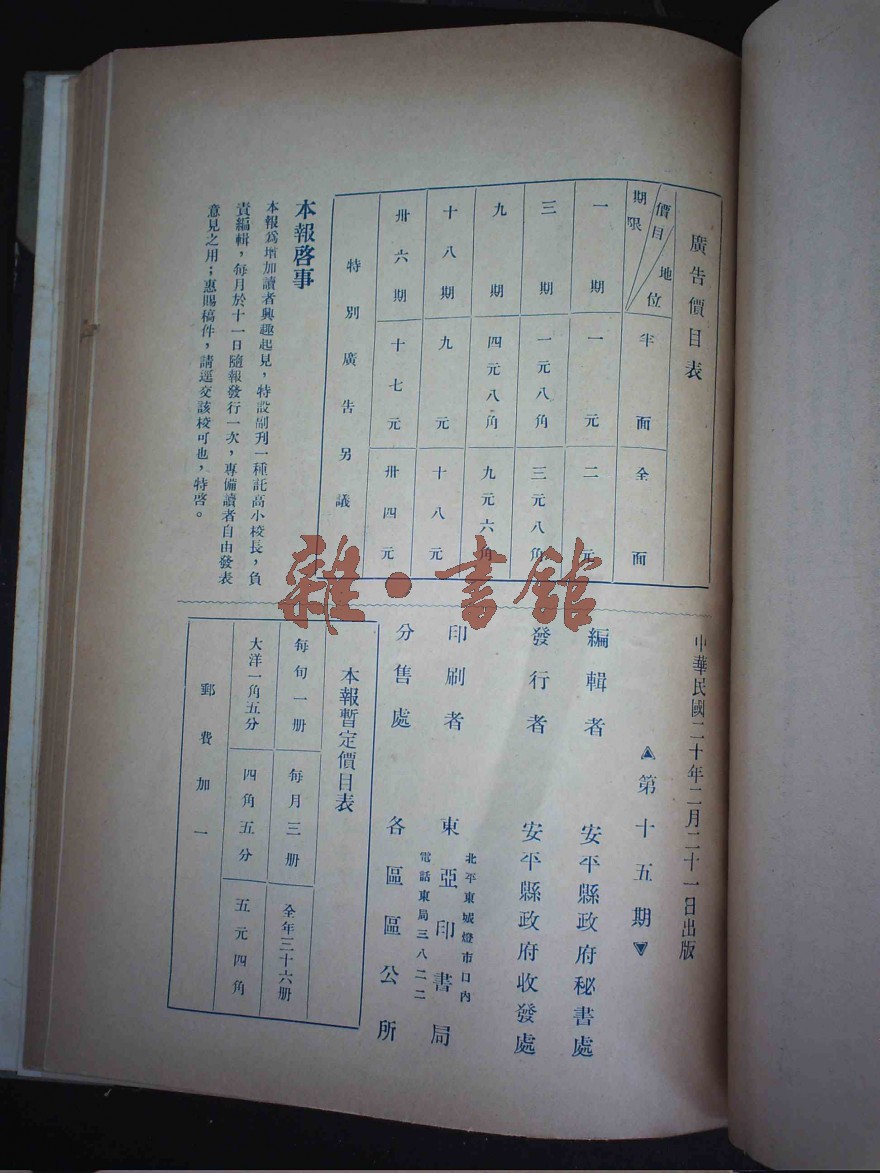 廣告價目表
價目 地位 期限
半面
全面
一期 一元 二元
三期 一元八角 三元八角
九期 四元八角 九元六角
十八期 九元 十八元
卅六期 十七元 卅四元
特別廣告另議
本報啓事
本報爲增加讀者興趣起見，特設副刊一種託高小校長，負
責編輯，每月於十一日隨報發行一次，專備讀者自由發表
意見之用；惠賜稿件，請逕交該校可也，特啓。
中華民國二十年二月二十一日出版
▲第十五期▼
編輯者 安平縣政府秘書處
發行者 安平縣政府收發處
北平東城燈市口內
印刷者 東亞印書局
電話東局三八二二
分售處 各區區公所
本報暫定價目表
每旬一册 每月三册 全年三十六册
大洋一角五分 四角五分 五元四角
郵費加一
雜·書館